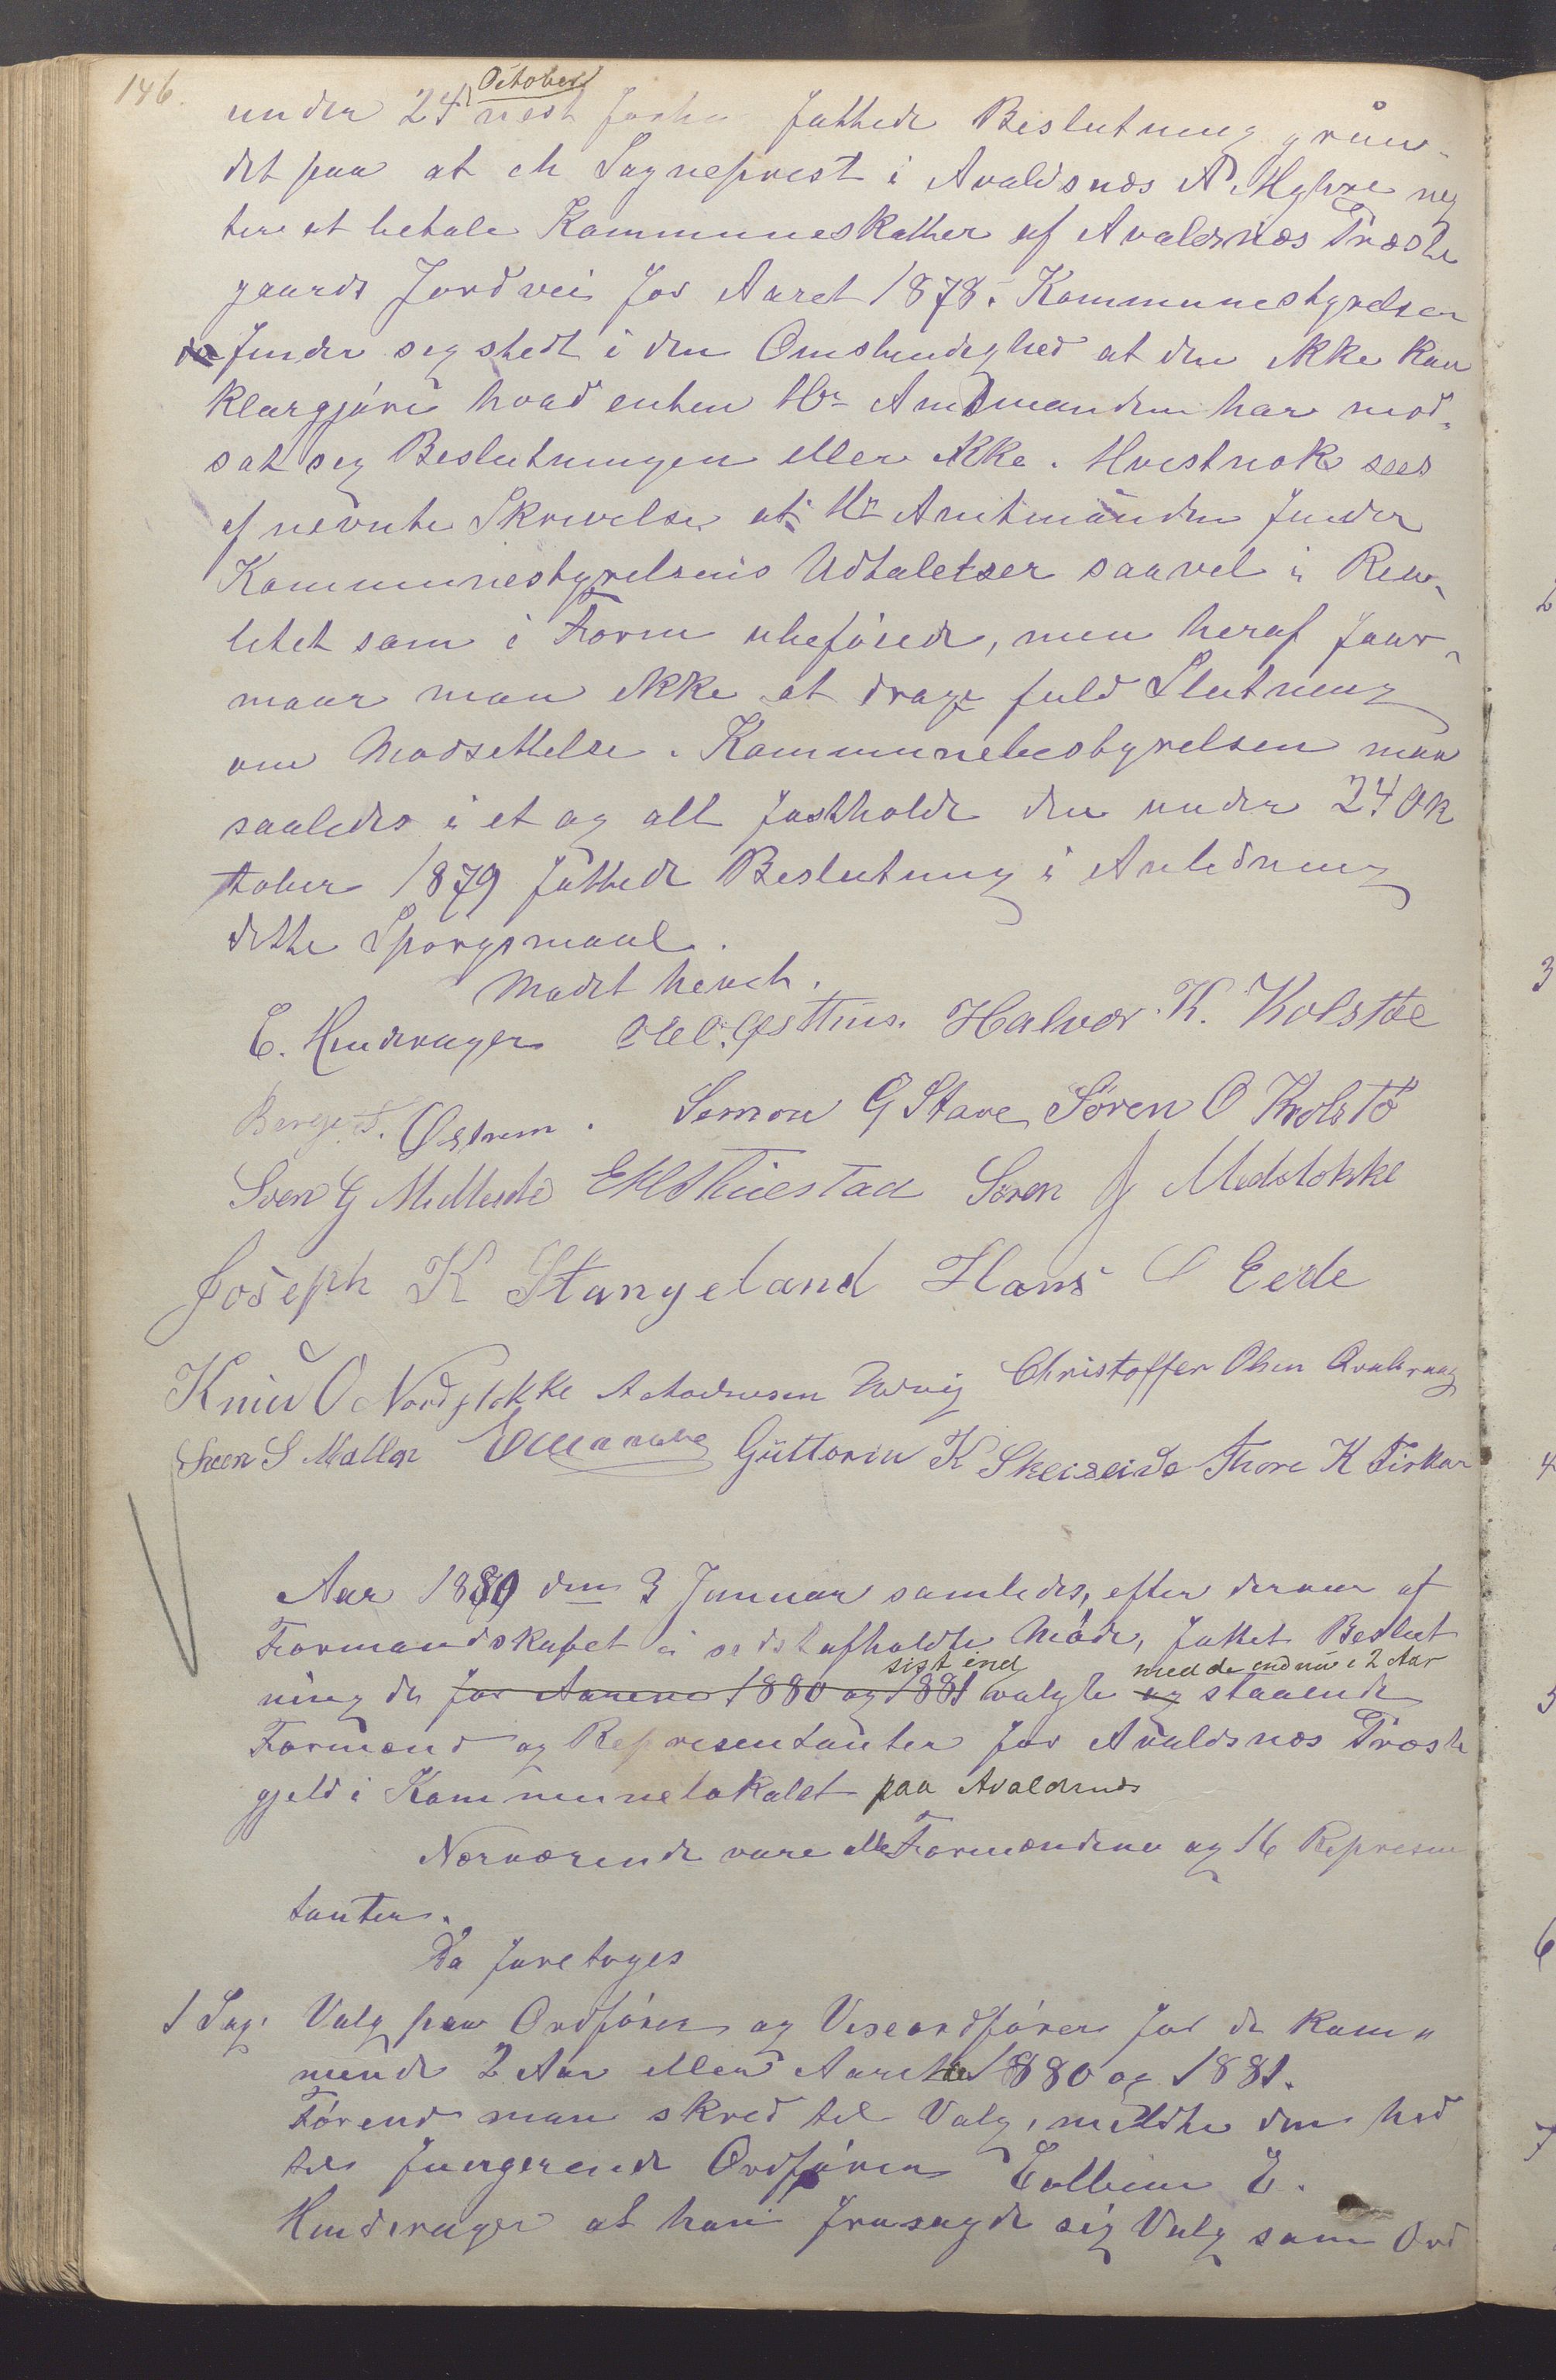 146.
October
under 24 nest forhe fattede Beslutning grun-
det paa at Sogneprest i Avaldsnæs A Myhre neg
ter at betale Kommuneskatter af Avaldsnæs Præste
gaards Jordvei for Aaret 1878. Kommunestyrelsen
finder seg stedt i den Omstendighed at den ikke kan
klargjøre hvad enten Hr Amtmanden har mod-
sat seg Beslutningen eller ikke. Hvistnok sees
af nevnte Skrivelse at Hr Amtmanden finder
Kommunestyrelsens Udtalelser saavel i Rea-
litet som i Form ubeføiede, men heraf for-
maar man ikke at drage fuld Slutning
om Modsettelse. Kommunebestyrelsen maa
saaledes i et og alt fastholde den under 24 Ok
tober 1879 fattede Beslutning i Anledning
dette Spørgsmaal.
Mødet hevet.
E. Hinderager Ole O. Halvor K. Kolstøe
Berge F. Østrem. Simon G Stave Søren O Kolstø
Sven G Søren J Medstokke
Joseph K Stangeland Hans O Eede
Knud O Nordstokke Christoffer Olsen
Sven S Guttorm K Skeiseide Thore K
Aar 1880 den 3 Januar samledes, efter derom af
Formandskabet i sidstafholdte Møde, fattet Beslut
sist ind medde endnu i 2 Aar
ning de for Aarene 1880 og 1881 valgte og staaende
Formænd og Representanter for Avaldsnæs Præste
gjeld i Kommunelokalet paa Avaldsnæs
Nærværende vare alle Formændene og 16 Represen
tanter.
Da foretoges
1 Sag. Valg paa Ordfører og Viseordfører for de kom-
mende 2 Aar eller Aarene 1880 og 1881.
Førend man skred til Valg, meldte den hid
til fungerende Ordfører Endre E.
Hinderager at han frasagde sig Valg som Ord
2
3
4
5
6
7